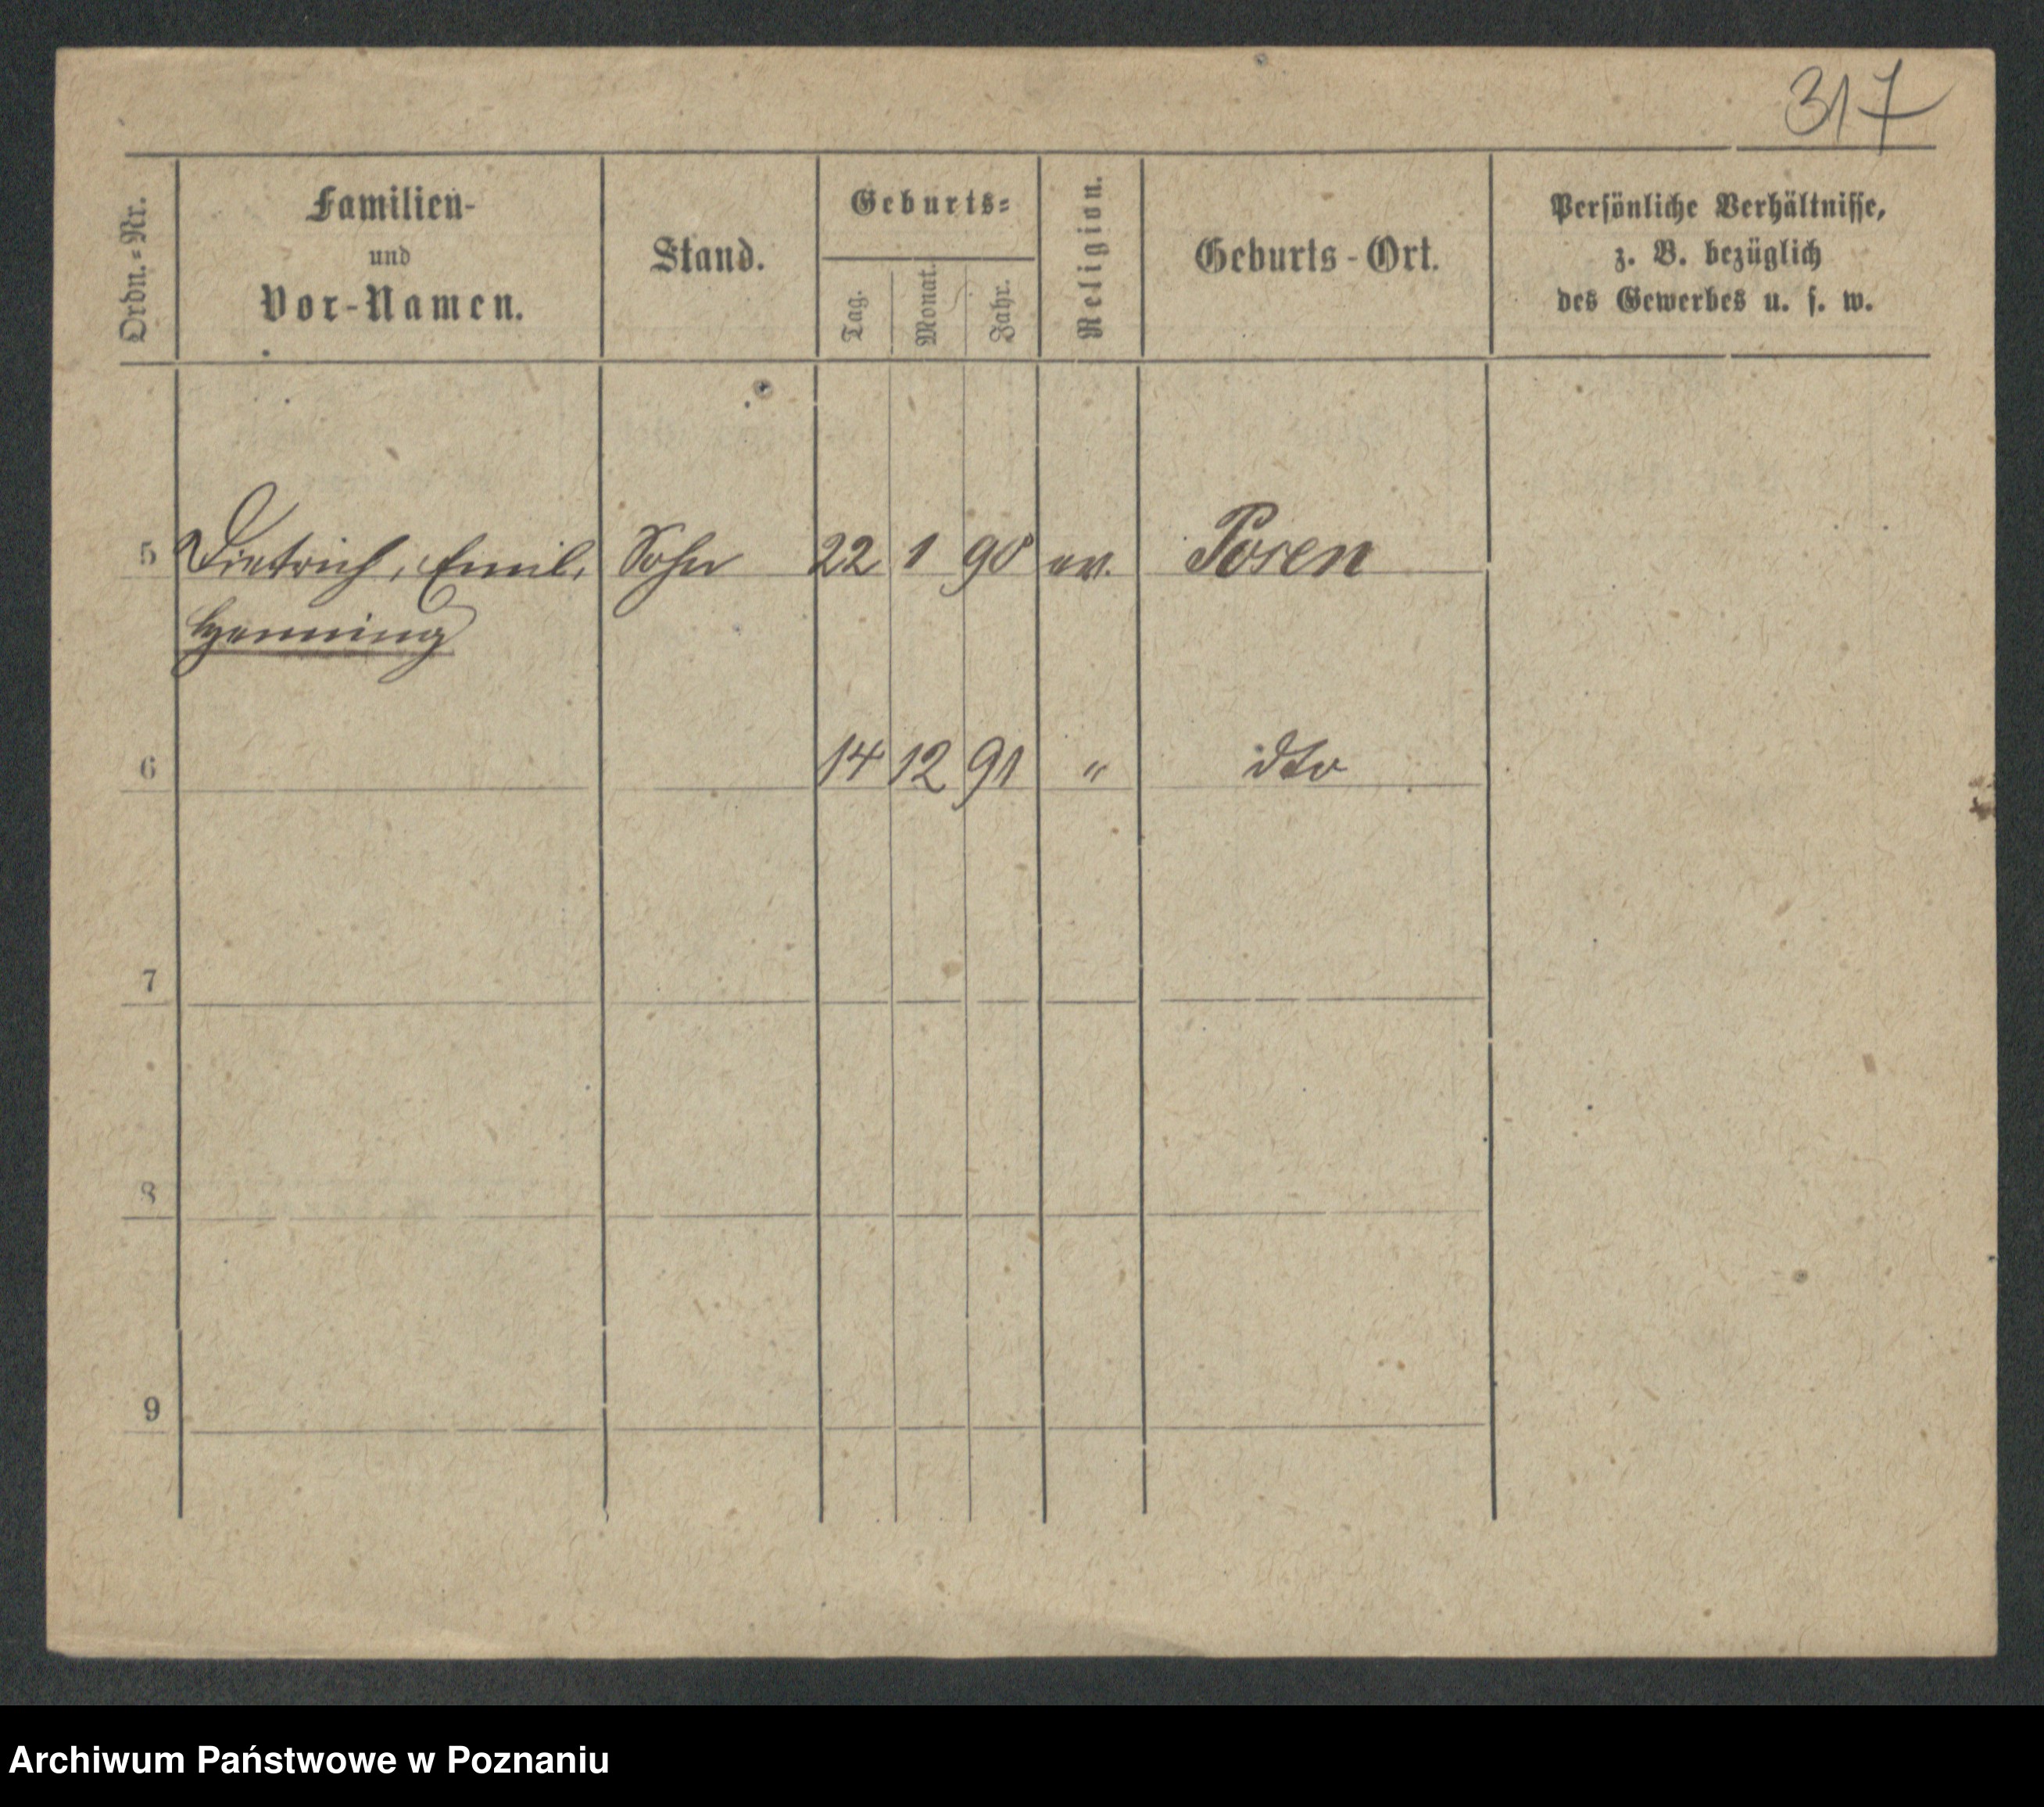 317
Ordn.-Nr.
Familien-
und
Vor-Namen.
Stand.
Geburts-
Tag.
Monat.
Jahr.
Religion.
Geburts-Ort.
Persönliche Verhältnisse,
z. B. bezüglich
des Gewerbes u. s. w.
5 Dietrich, Emil, Sohn 22 1 90 ev. Posen
Henning
6 14 12 91 " dto
7
8
9
Archiwum Państwowe w Poznaniu